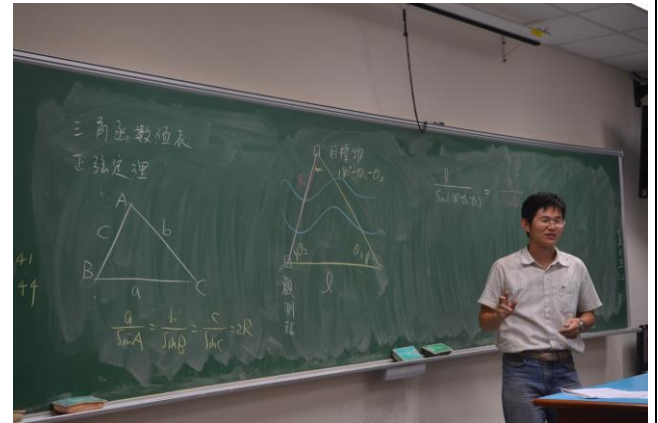 三角函數值表
正弦定理
A
c b
B a C
a/SinA = b/SinB = c/SinC = 2R
目標物
180°-θ₁-θ₂
θ₂ θ₁
l
觀測站
l/Sin(180°-θ₁-θ₂) =
41
44